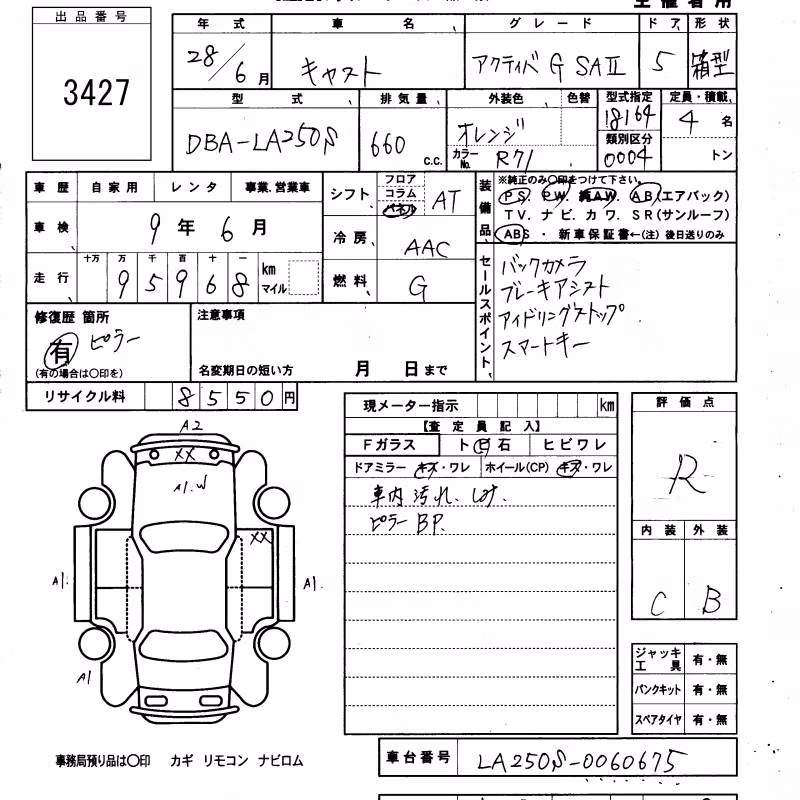 出品番号
3427
年式 車名 グレード ドア 形状
28/6月 キャスト アクティバ G SAⅡ 5 箱型
型式 排気量 外装色 色替 型式指定 定員・積載
DBA-LA250S 660 c.c. オレンジ 18164 4 名
カラーNo. R71 類別区分 0004 トン
車歴 自家用 レンタ 事業.営業車
車検 9年 6月
走行 十万 万 千 百 十 一
9 5 9 6 8 km マイル
シフト フロア コラム パネル AT
冷房 AAC
燃料 G
装備品 ※純正のみ〇印をつけて下さい。
PS. PW. 純AW. AB(エアバック)
TV. ナビ. カワ. SR(サンルーフ)
ABS ・ 新車保証書←(注) 後日送りのみ
セールスポイント
バックカメラ
ブレーキアシスト
アイドリングストップ
スマートキー
修復歴 箇所
有 ピラー
(有の場合は〇印を)
注意事項
名変期日の短い方 月 日まで
リサイクル料 8550円
現メーター指示 km
【査定員記入】
Fガラス ト ビ 石 ヒビワレ
ドアミラー キズ・ワレ ホイール(CP) キズ・ワレ
車内 汚れ、しみ.
ピラー BP.
評価点
R
内装 外装
C B
A2
XX
A1.W
XX
A1.
A1.
A1
ジャッキ工具 有・無
パンクキット 有・無
スペアタイヤ 有・無
事務局預り品は〇印 カギ リモコン ナビロム
車台番号 LA250S-0060675